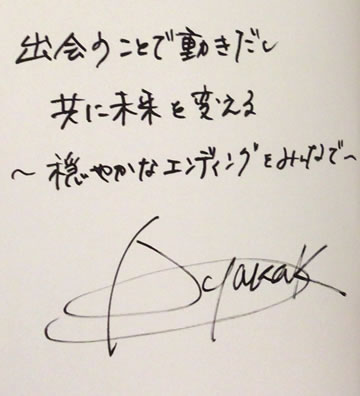 出会うことで動きだし
共に未来を変える
～穏やかなエンディングをみんなで～